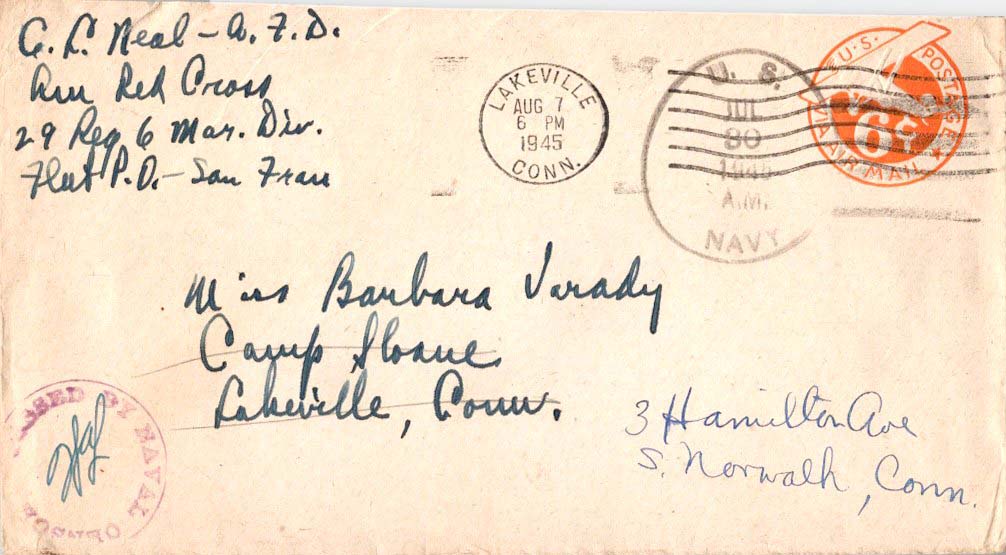 C. L. Neal - A. F. D.
Am Red Cross
29 Reg 6 Mar. Div.
Fleet P.O. - San Fran
LAKEVILLE
AUG 7
6 PM
1945
CONN.
U. S.
JUL
30
A.M.
NAVY
U.S. POSTAGE
6¢
VIA AIR MAIL
Miss Barbara Varady
Camp Sloane
Lakeville, Conn.
3 Hamilton Ave
S. Norwalk, Conn.
PASSED BY NAVAL CENSOR